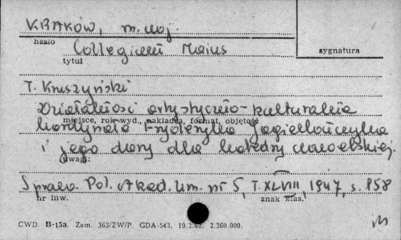 KRAKÓW, m. woj.
hasło
Collegium Maius
sygnatura
tytuł
T. Kruszyński
Działalność artystyczno-kulturalna
miejsce, rok wyd., nakładca, format, objętość
kardynała Fryderyka Jagiellończyka
i jego dary dla katedry wawelskiej.
uwagi:
Sprawo. Pol. Akad. Um. nr 5, T. XLVIII, 1947, s. 858
nr inw.
znak klas.
CWD. B-15a. Zam. 363/ZW/P. GDA-543. 2.260.000.